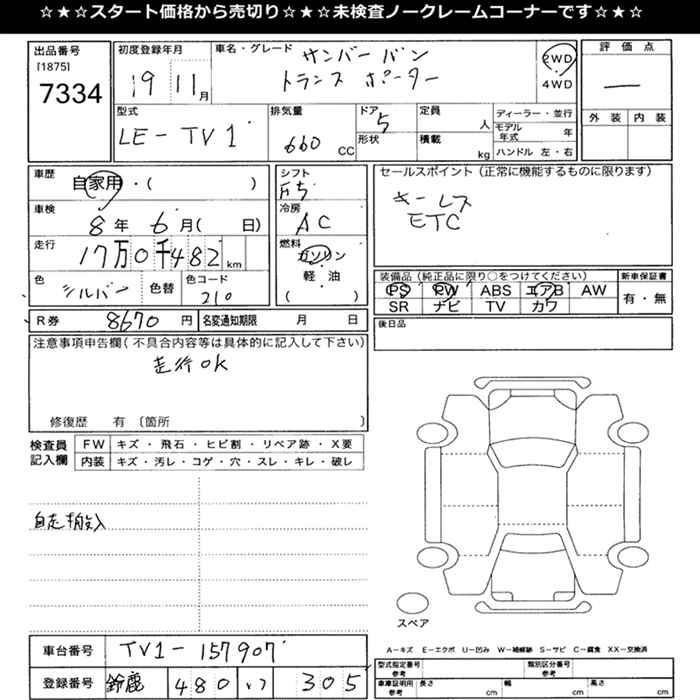 ☆★☆★スタート価格から売切り☆★☆★未検査ノークレームコーナーです☆★☆
出品番号
[1875]
7334
初度登録年月
19 11月
車名・グレード
サンバー バン
トランスポーター
2WD
4WD
評価点
—
外装 内装
型式
LE-TV1
排気量
660 CC
ドア 5
形状
定員 人
積載 kg
ディーラー・並行
モデル年式 年
ハンドル 左・右
車歴
自家用・( )
車検
8年 6月( 日)
走行
17万0千482 km
色
シルバー
色替
色コード
210
シフト
F5
冷房
AC
燃料
ガソリン
軽・油
( )
セールスポイント(正常に機能するものに限ります)
キーレス
ETC
装備品(純正品に限り○をつけてください)
PS PW ABS エアB AW
SR ナビ TV カワ
新車保証書
有・無
R券 8670 円
名変通知期限 月 日
後日品
注意事項申告欄(不具合内容等は具体的に記入して下さい)
走行OK
修復歴 有 〔箇所 〕
検査員
記入欄
FW キズ・飛石・ヒビ割・リペア跡・X要
内装 キズ・汚レ・コゲ・穴・スレ・キレ・破レ
自走搬入
スペア
A-キズ E-エクボ U-凹み W-補修跡 S-サビ C-腐食 XX-交換済
車台番号 TV1-157907
登録番号 鈴鹿 480 い 305
型式指定番号
参考
類別区分番号
参考
車庫証明用
参考
長さ cm
幅 cm
高さ cm